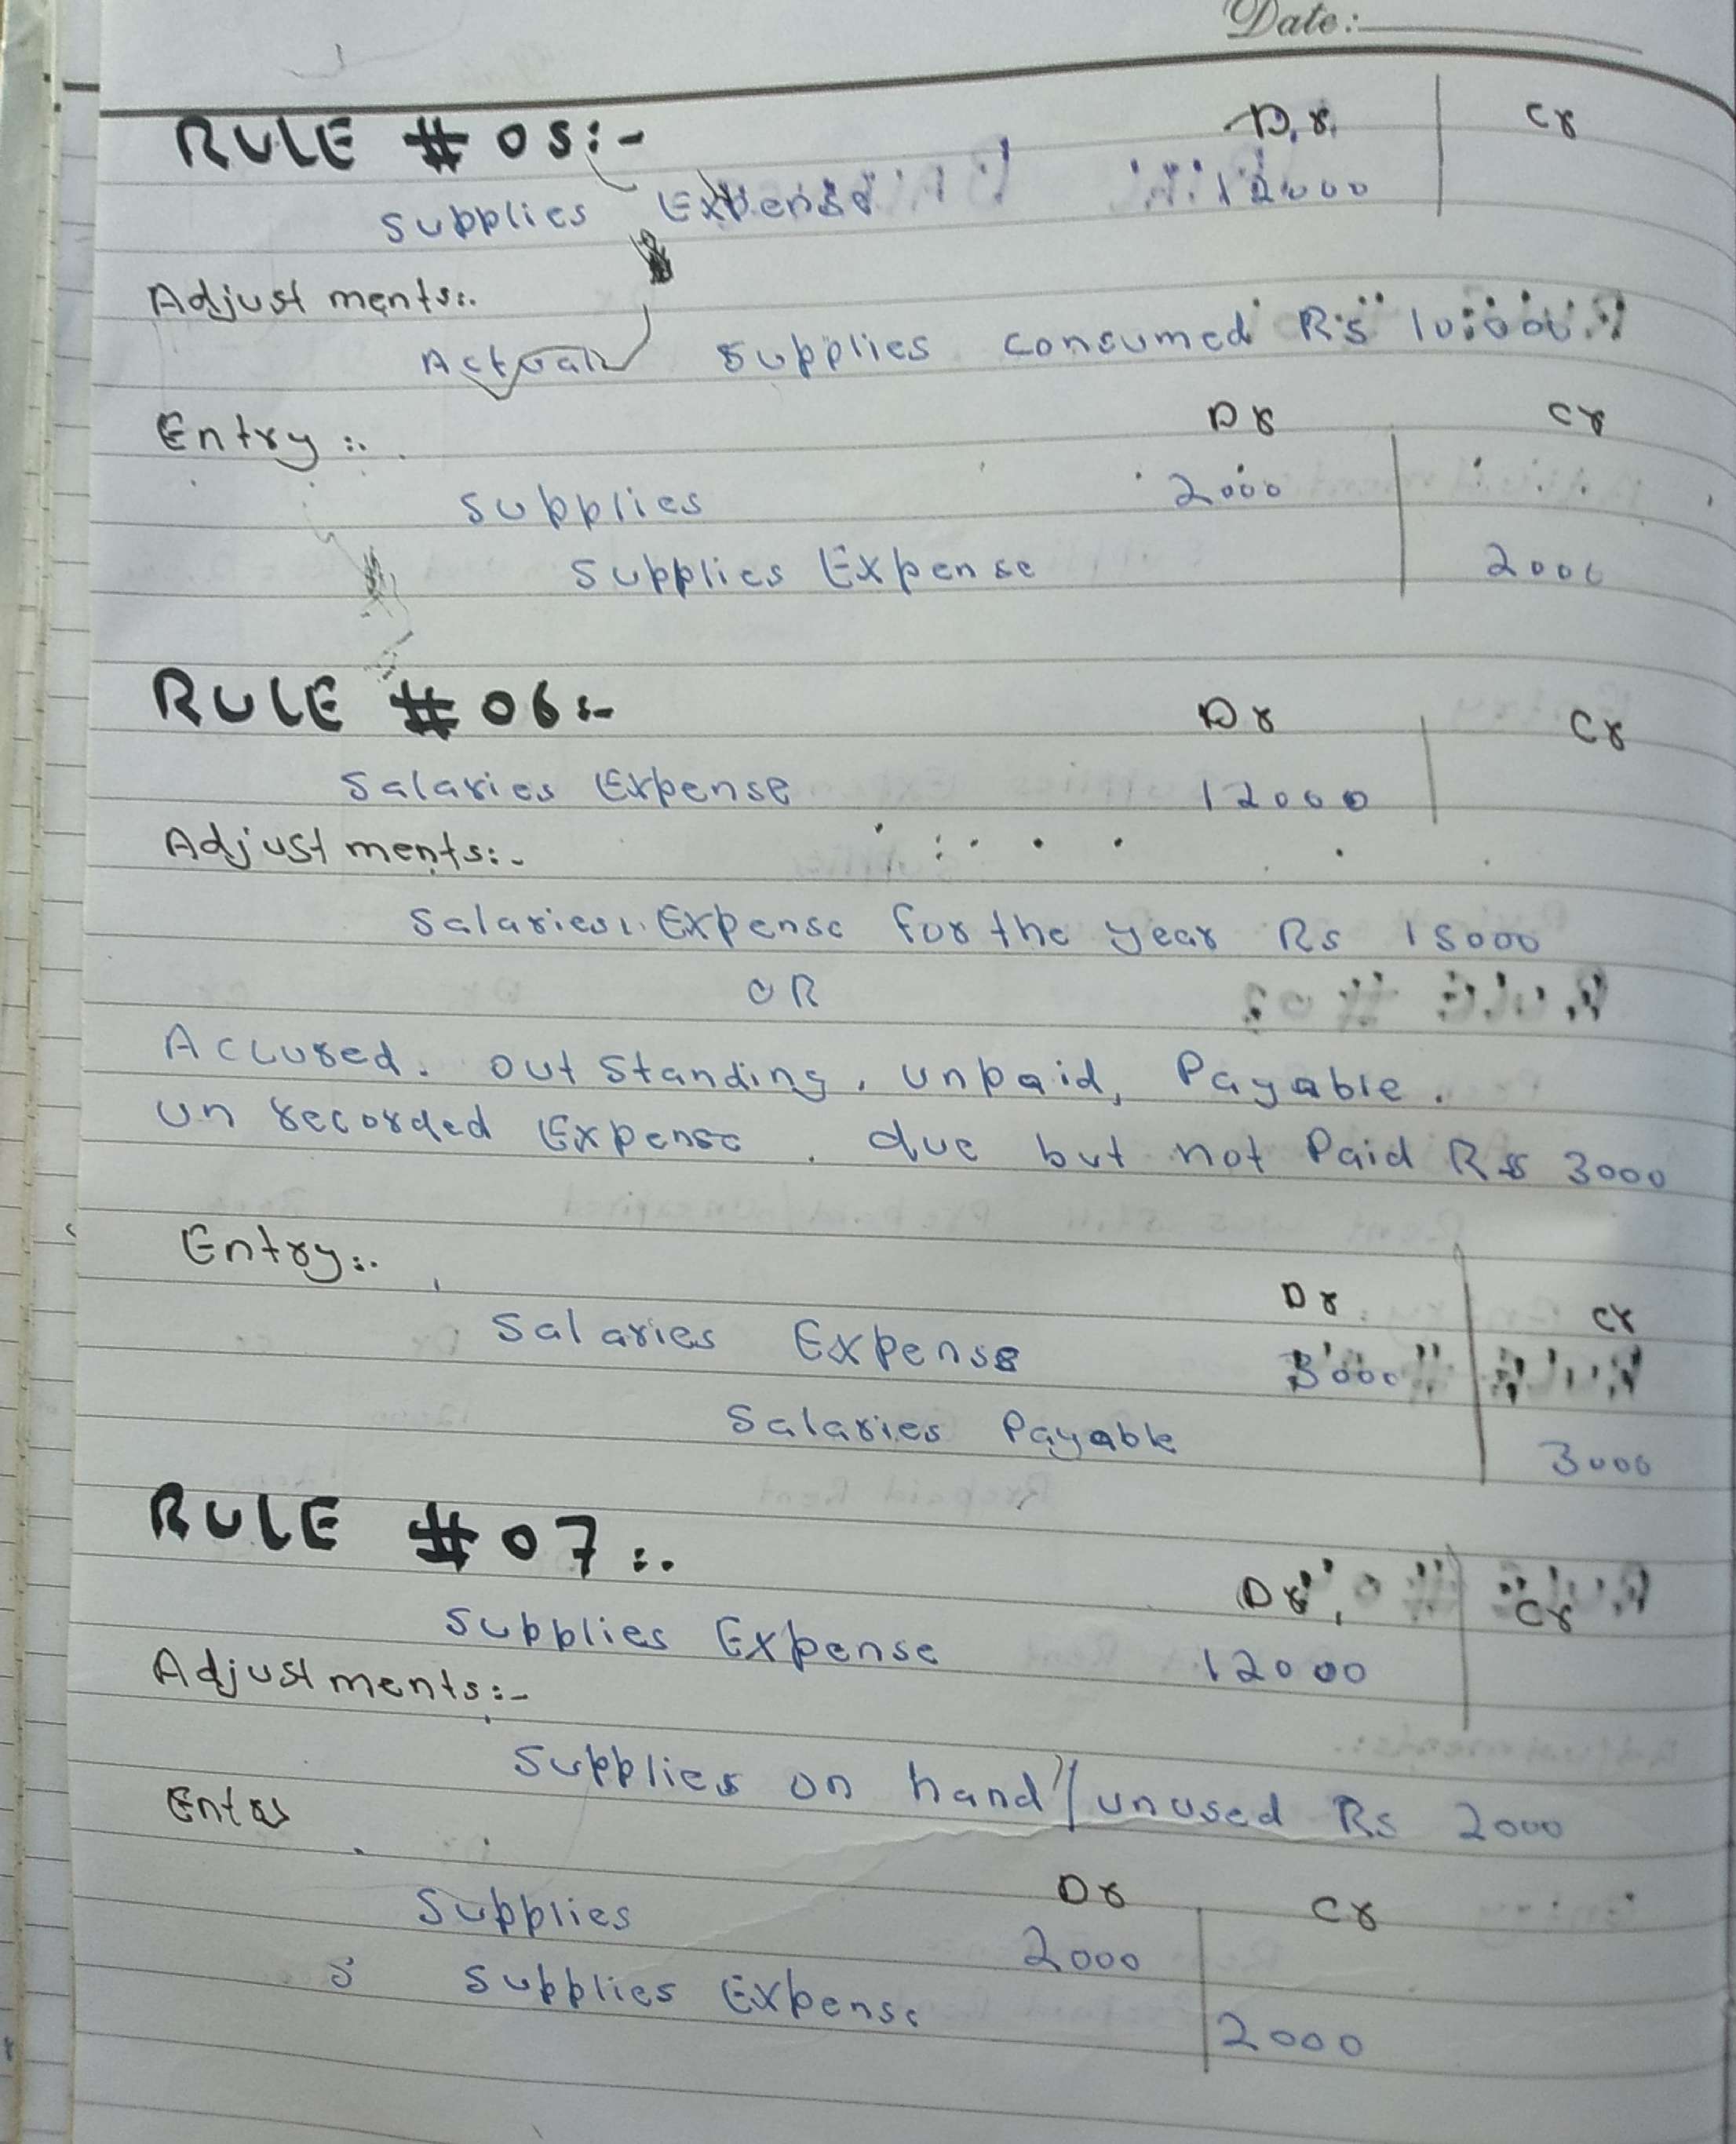 Date:
RULE # 05:- Dr. Cr
Supplies Expense 12000
Adjustments:.
Actual Supplies consumed Rs 10,000
Entry:. Dr Cr
Supplies 2000
Supplies Expense 2000
RULE # 06:- Dr Cr
Salaries Expense 12000
Adjustments:-
Salaries Expense for the year Rs 15000
OR
Accured. out standing, unpaid, Payable.
un recorded Expense. due but not Paid Rs 3000
Entry:. Dr Cr
Salaries Expense 3000
Salaries Payable 3000
RULE # 07:. Dr Cr
Supplies Expense 12000
Adjustments:-
Supplies on hand/unused Rs 2000
Entry
Dr Cr
Supplies 2000
S Supplies Expense 2000